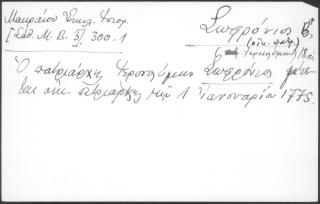 Μακραίου Ὑπομν. Ἱστορ.
[Σάθ. Μ. Β. 3] 300-1
Σωφρόνιος Β'
(οἰκ. πατρ.)
Ἱεροσολύμων) 18 αἰ.
Ὁ πατριάρχης Ἱεροσολύμων Σωφρόνιος γίνε-
ται οἰκ. πατριάρχης τὴν 1 Ἰανουαρίου 1775.